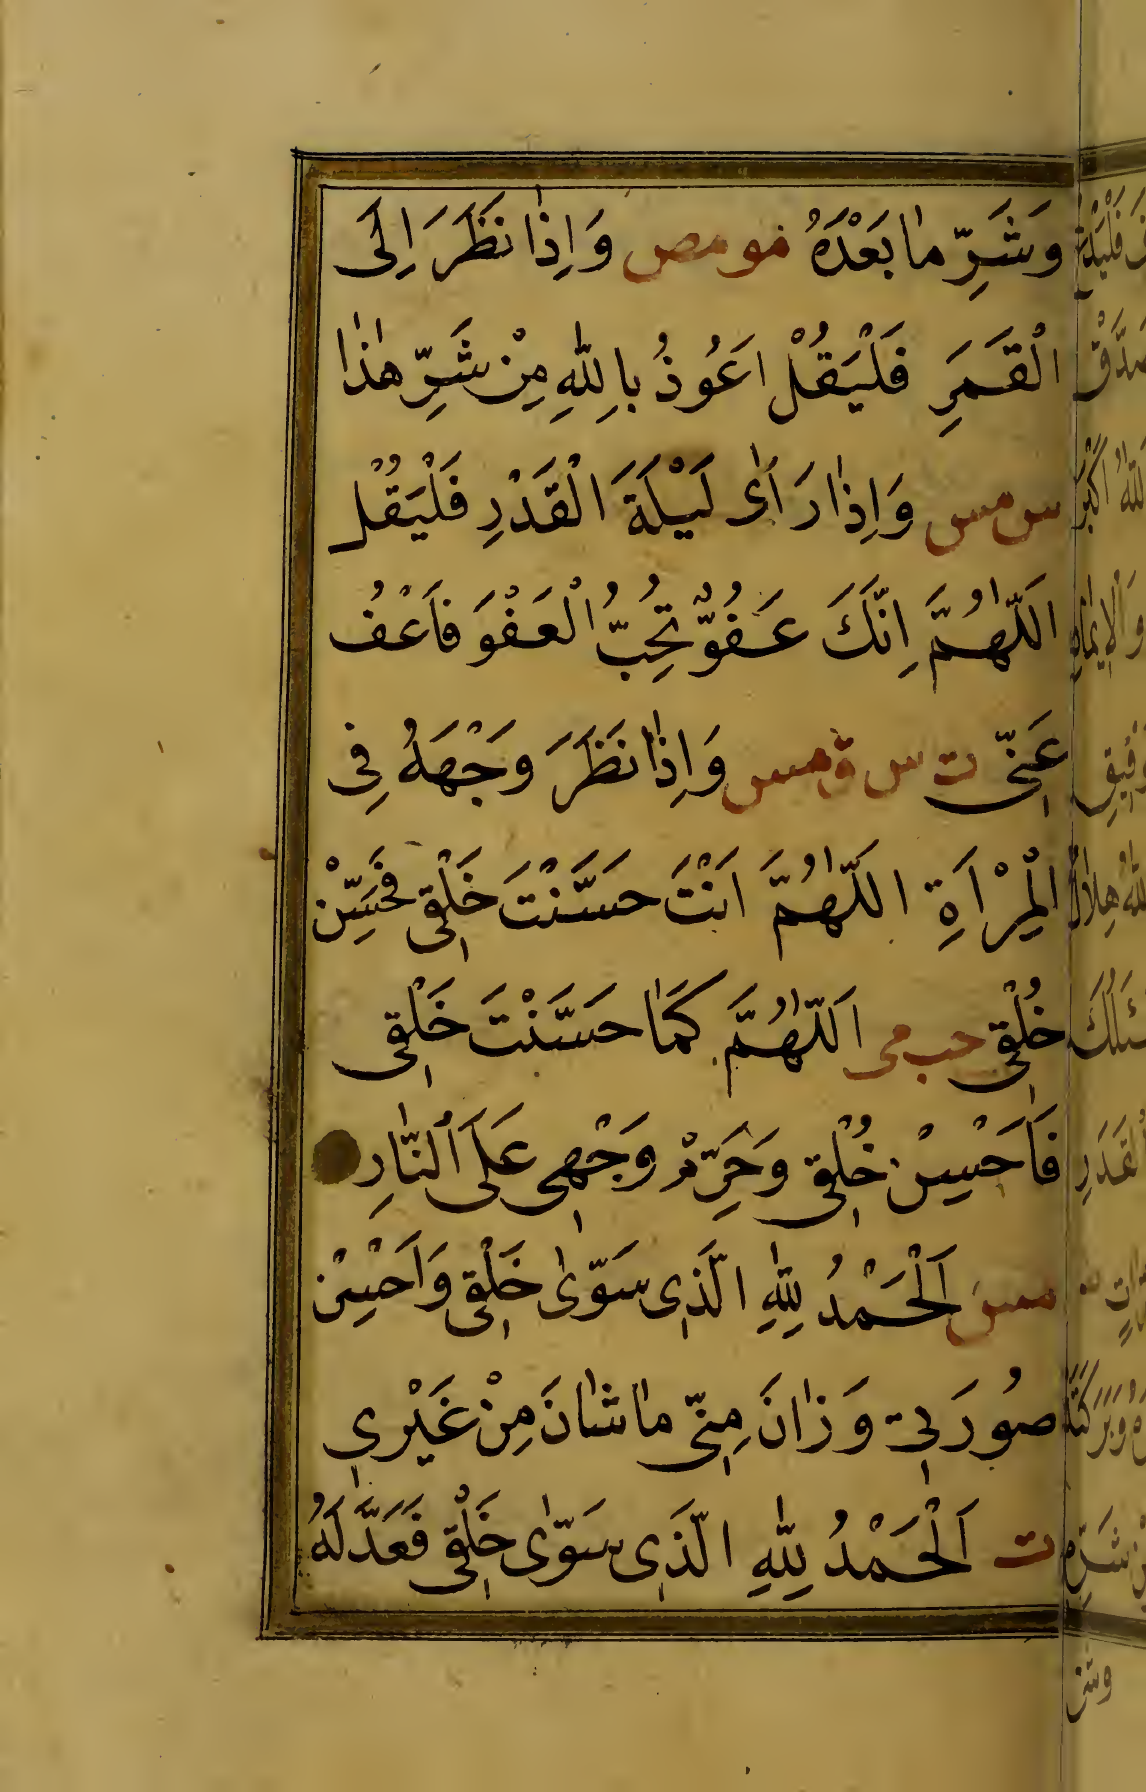 وَشَرِّ مٰا بَعْدَهُ مو مص وَاِذٰا نَظَرَ اِلَى
الْقَمَرِ فَلْيَقُلْ اَعُوذُ بِاللّٰهِ مِنْ شَرِّ هٰذٰا
س مس وَاِذٰا رَاَىٰ لَيْلَةَ الْقَدْرِ فَلْيَقُلْ
اَللّٰهُمَّ اِنَّكَ عَفُوٌّ تُحِبُّ الْعَفْوَ فَاعْفُ
عَنّٖى ت س ق مس وَاِذٰا نَظَرَ وَجْهَهُ فِى
الْمِرْاَةِ اللّٰهُمَّ اَنْتَ حَسَّنْتَ خَلْقٖى فَحَسِّنْ
خُلْقٖى حب مى اَللّٰهُمَّ كَمٰا حَسَّنْتَ خَلْقٖى
فَاَحْسِنْ خُلْقٖى وَحَرِّمْ وَجْهٖى عَلَى النّٰارِ
مس اَلْحَمْدُ لِلّٰهِ الَّذٖى سَوّٰى خَلْقٖى وَاَحْسَنَ
صُورَتٖى وَزٰانَ مِنّٖى مٰا شٰانَ مِنْ غَيْرٖى
ت اَلْحَمْدُ لِلّٰهِ الَّذٖى سَوّٰى خَلْقٖى فَعَدَّلَهُ